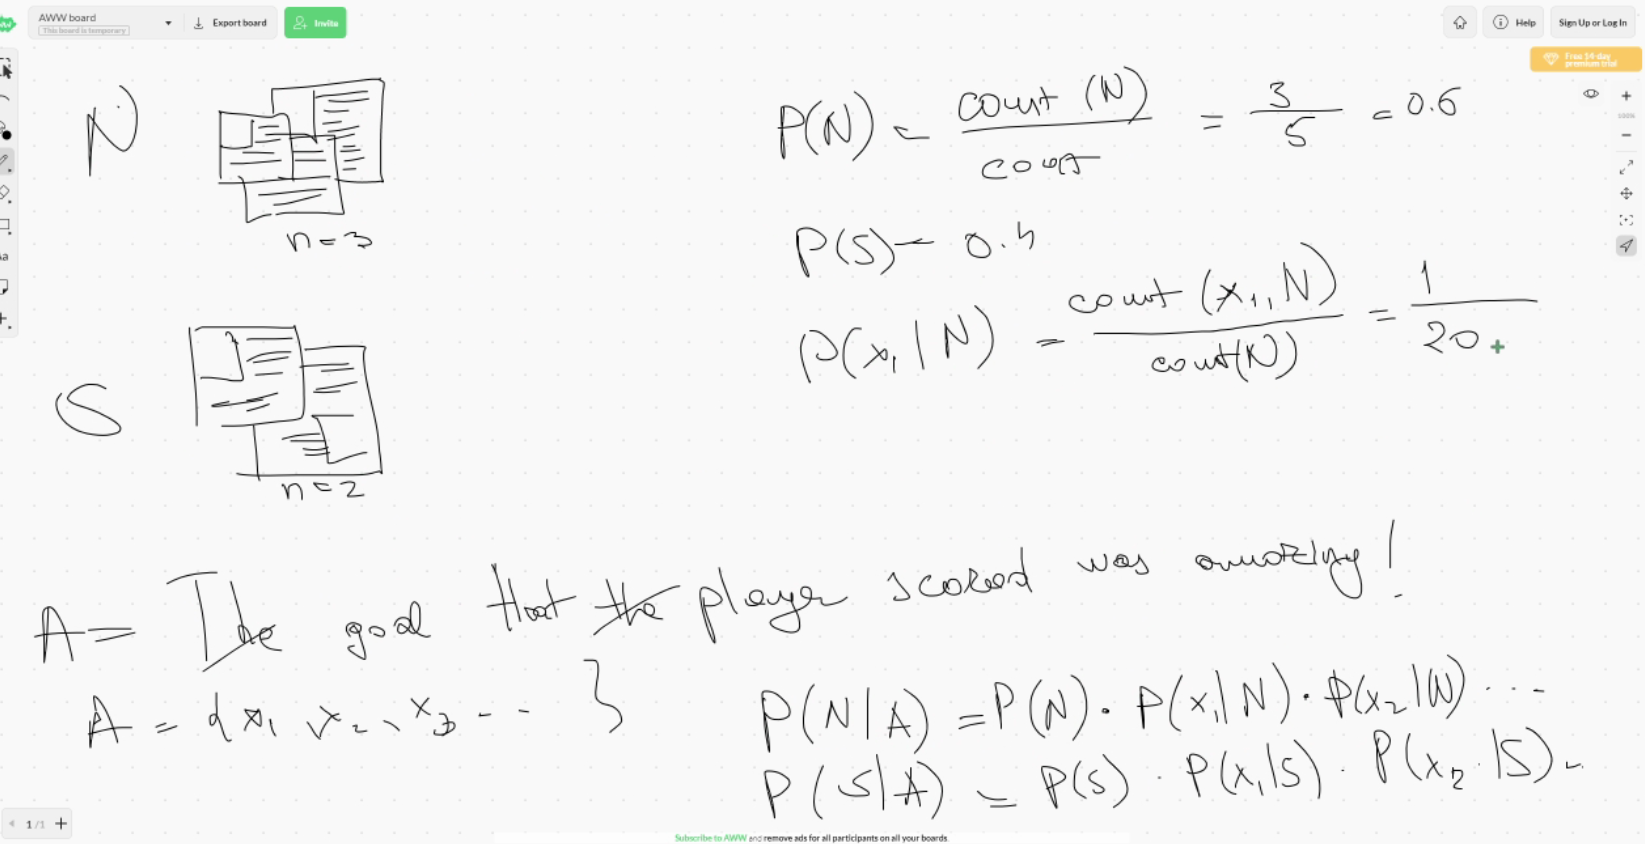 AWW board
This board is temporary
Export board
Invite
Help
Sign Up or Log In
Free 14-day
premium trial
N
n = 3
P(N) = count (N) / count = 3 / 5 = 0.6
P(S) = 0.4
P(x₁ | N) = count (x₁, N) / count(N) = 1 / 20
S
n = 2
A = The goal that the player scored was amazing!
A = {x₁, x₂, x₃ - - }
P(N|A) = P(N) · P(x₁|N) · P(x₂|N) ...
P(S|A) = P(S) · P(x₁|S) · P(x₂|S) ..
100%
Aa
1 /1
Subscribe to AWW and remove ads for all participants on all your boards.